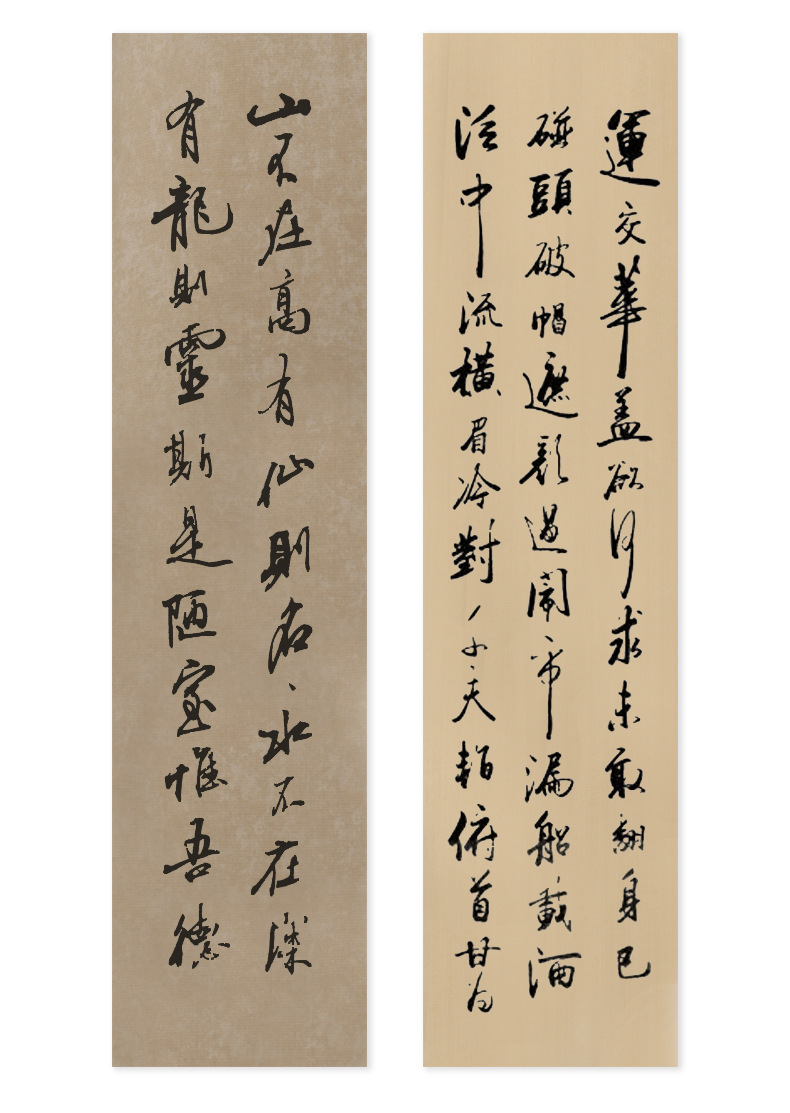 運交華盖欲何求未敢翻身已
碰頭破帽遮顏過鬧市漏船載酒
泛中流橫眉冷對千夫指俯首甘為
山不在高有仙則名水不在深
有龍則靈斯是陋室惟吾德